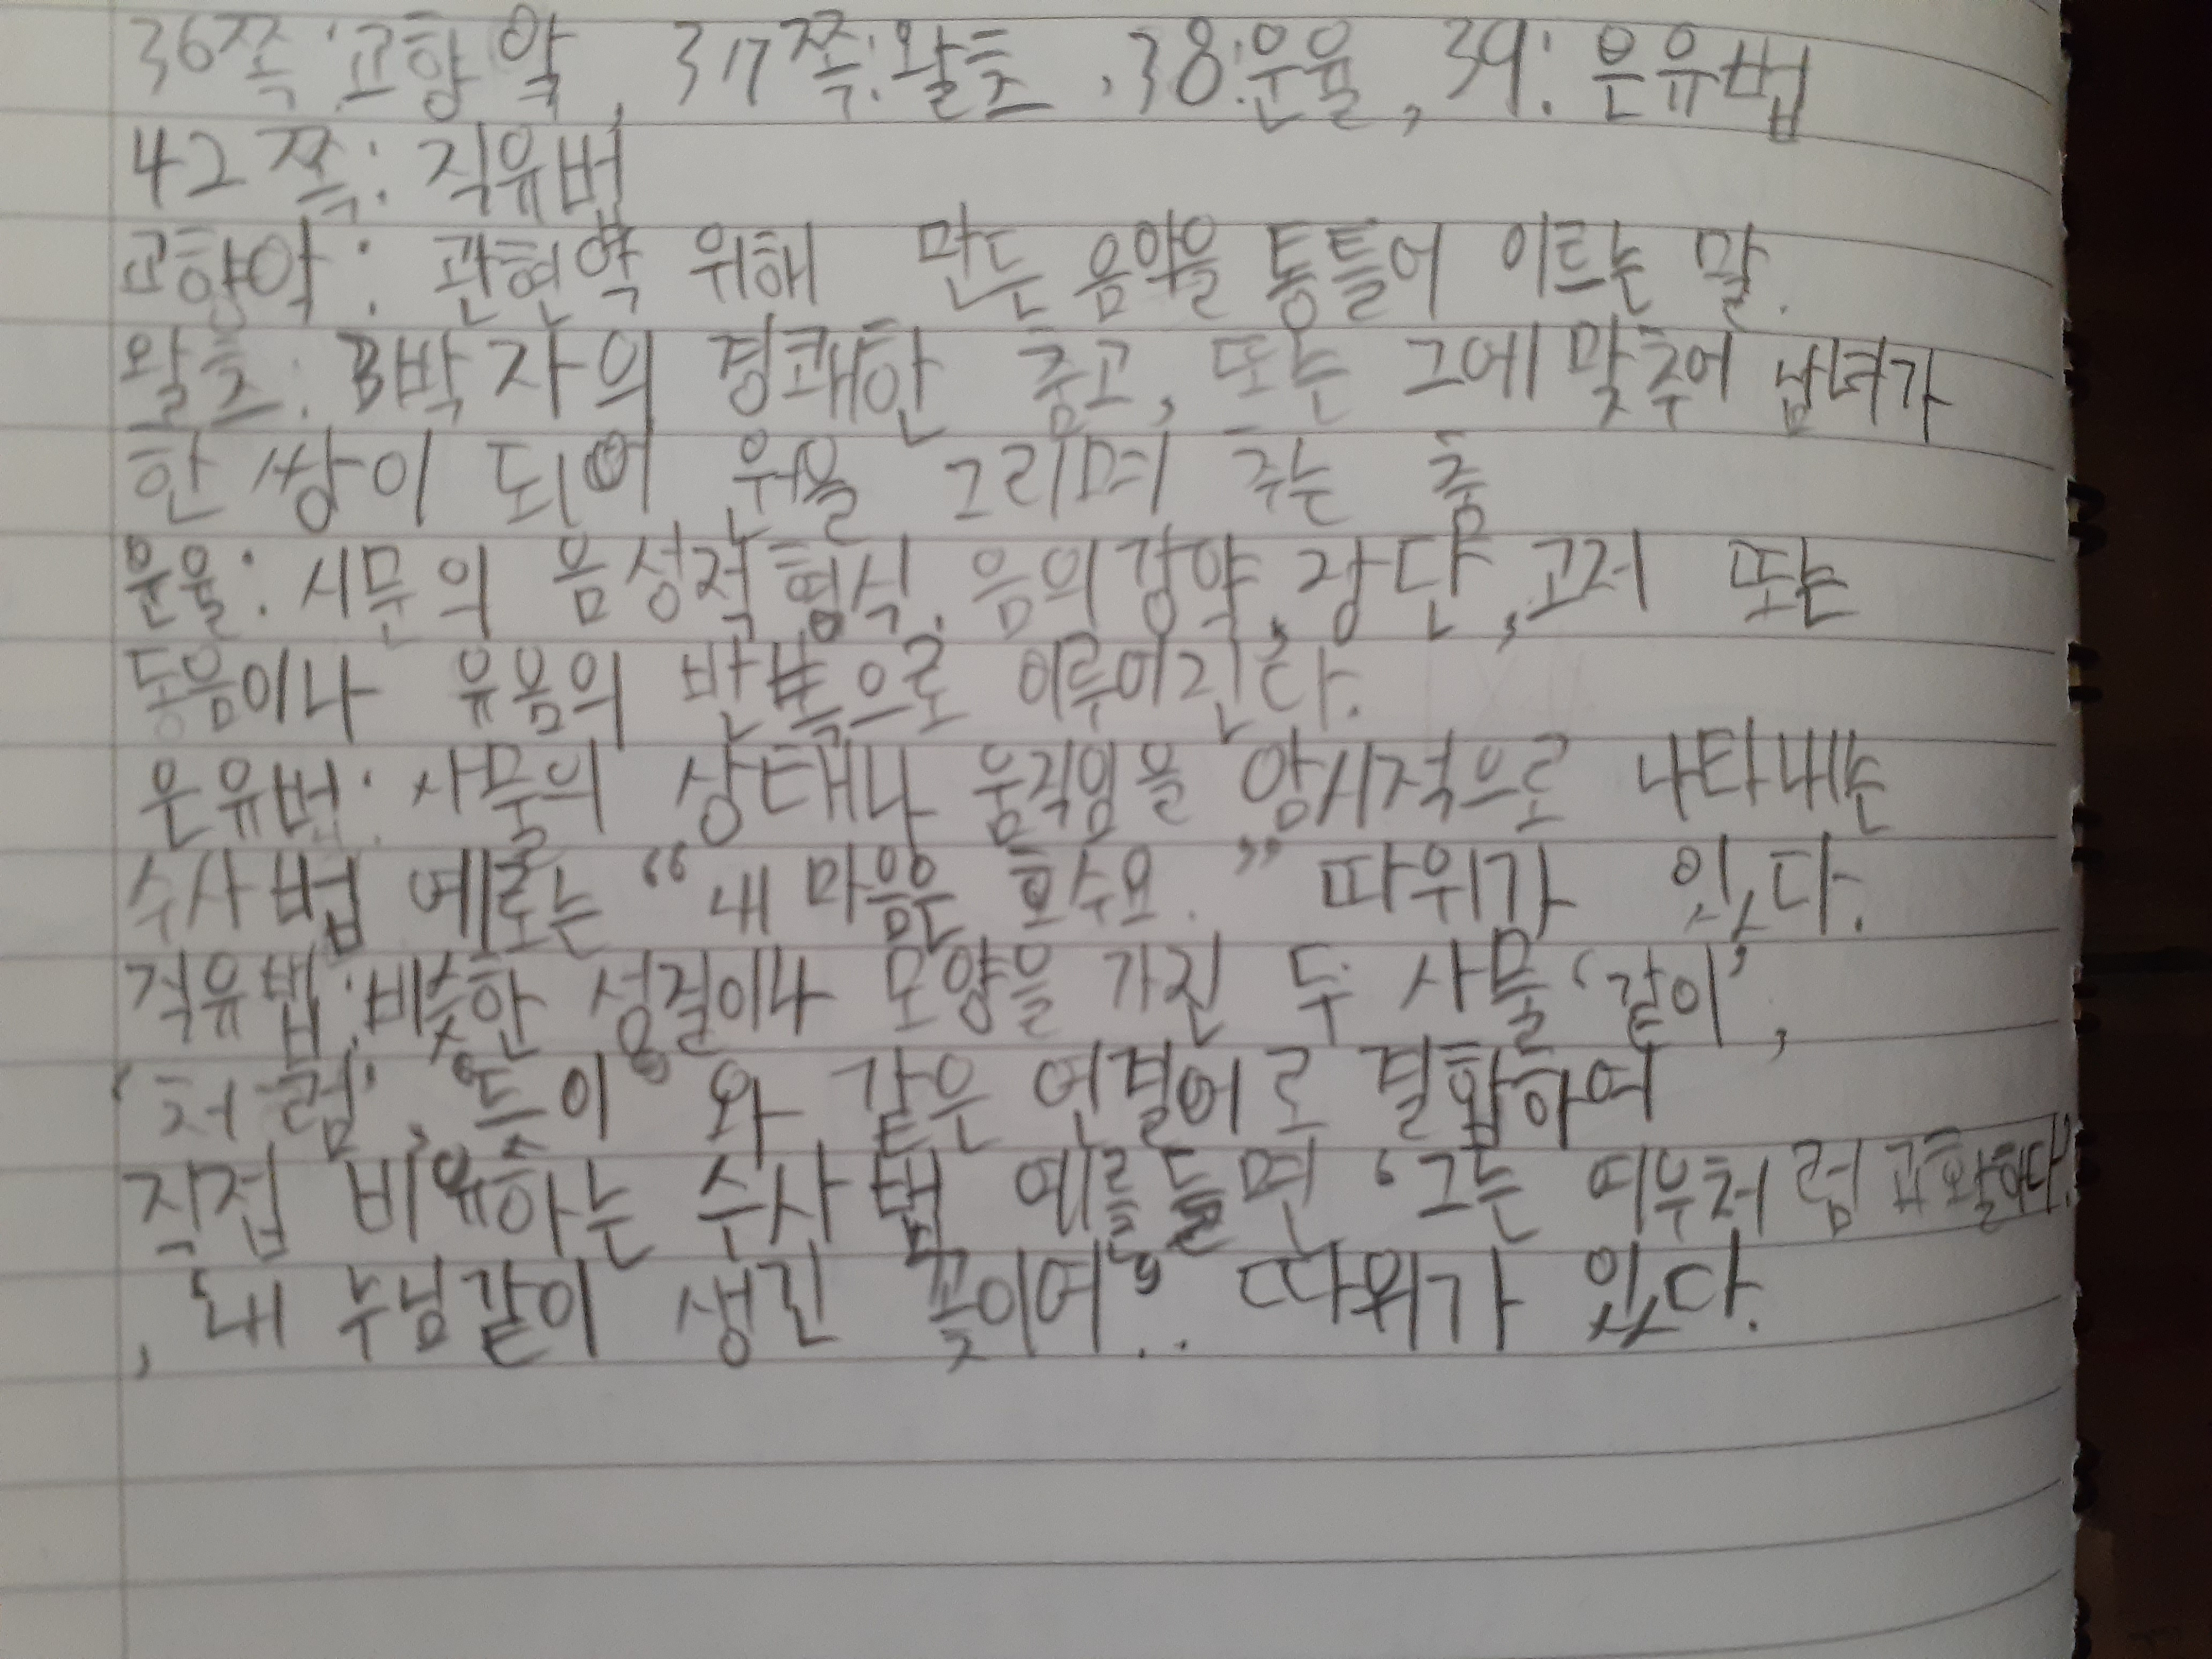 36쪽:교향악, 37쪽:왈츠, 38:운율, 39: 은유법
42쪽: 직유법
교향악: 관현악 위해 만든 음악을 통틀어 이르는 말.
왈츠: 3박자의 경쾌한 춤곡, 또는 그에 맞추어 남녀가
한 쌍이 되어 원을 그리며 추는 춤
운율: 시문의 음성적 형식. 음의 강약, 장단, 고저 또는
동음이나 유음의 반복으로 이루어진다.
은유법: 사물의 상태나 움직임을 암시적으로 나타내는
수사법 예로는 “내 마음은 호수요.” 따위가 있다.
직유법:비슷한 성질이나 모양을 가진 두 사물 ‘같이’,
‘처럼’, ‘듯이’ 와 같은 연결어로 결합하여
직접 비유하는 수사법 예를들면 ‘그는 여우처럼 교활하다’
, 내 누님같이 생긴 꽃이여’.. 따위가 있다.